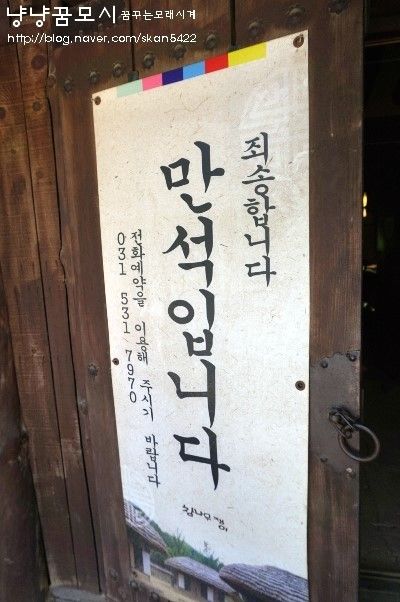 냥냥꿈모시 꿈꾸는모래시계
http://blog.naver.com/skan5422
죄송합니다
만석입니다
전화예약을 이용해 주시기 바랍니다
031 531 7970
참나무쟁이